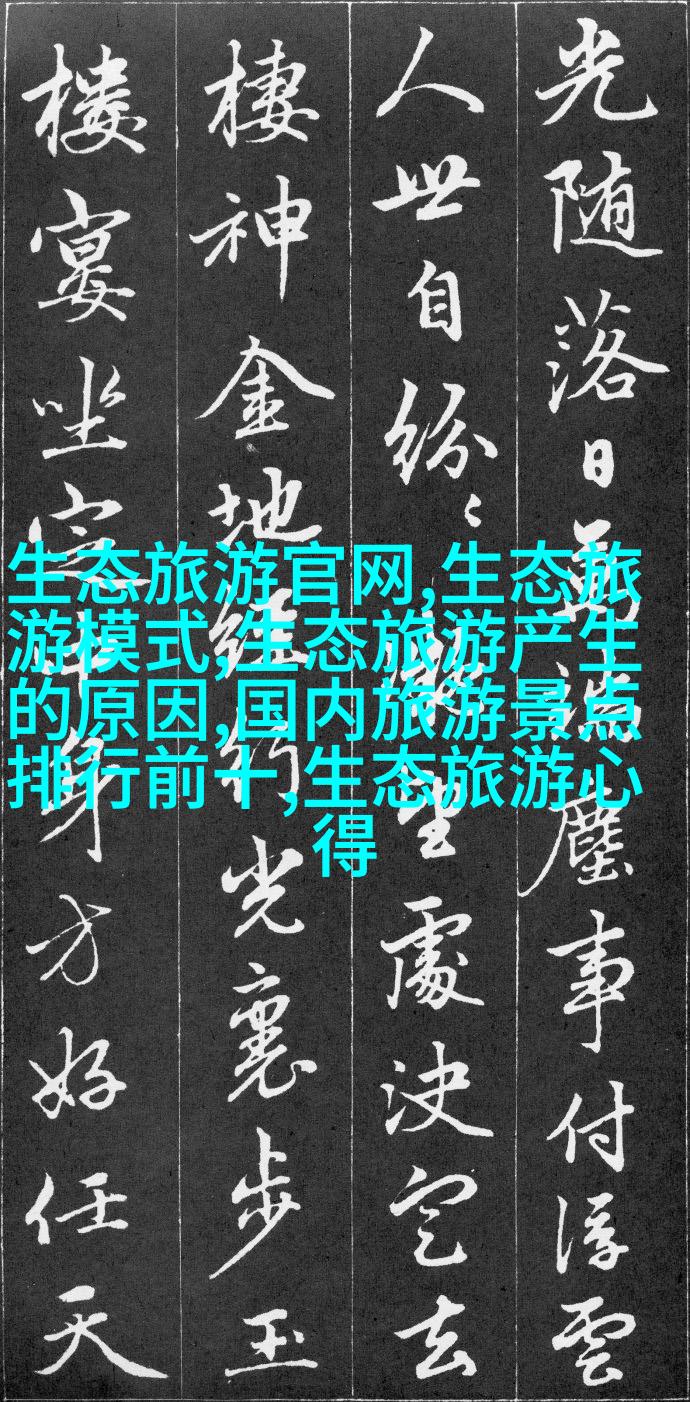 光随落日萬端塵事付浮雲
人世自紛〻望處決定去
棲神金地經行光裏步玉
楼宴坐定中身方好任天
生态旅游官网,生态旅
游模式,生态旅游产生
的原因,国内旅游景点
排行前十,生态旅游心
得